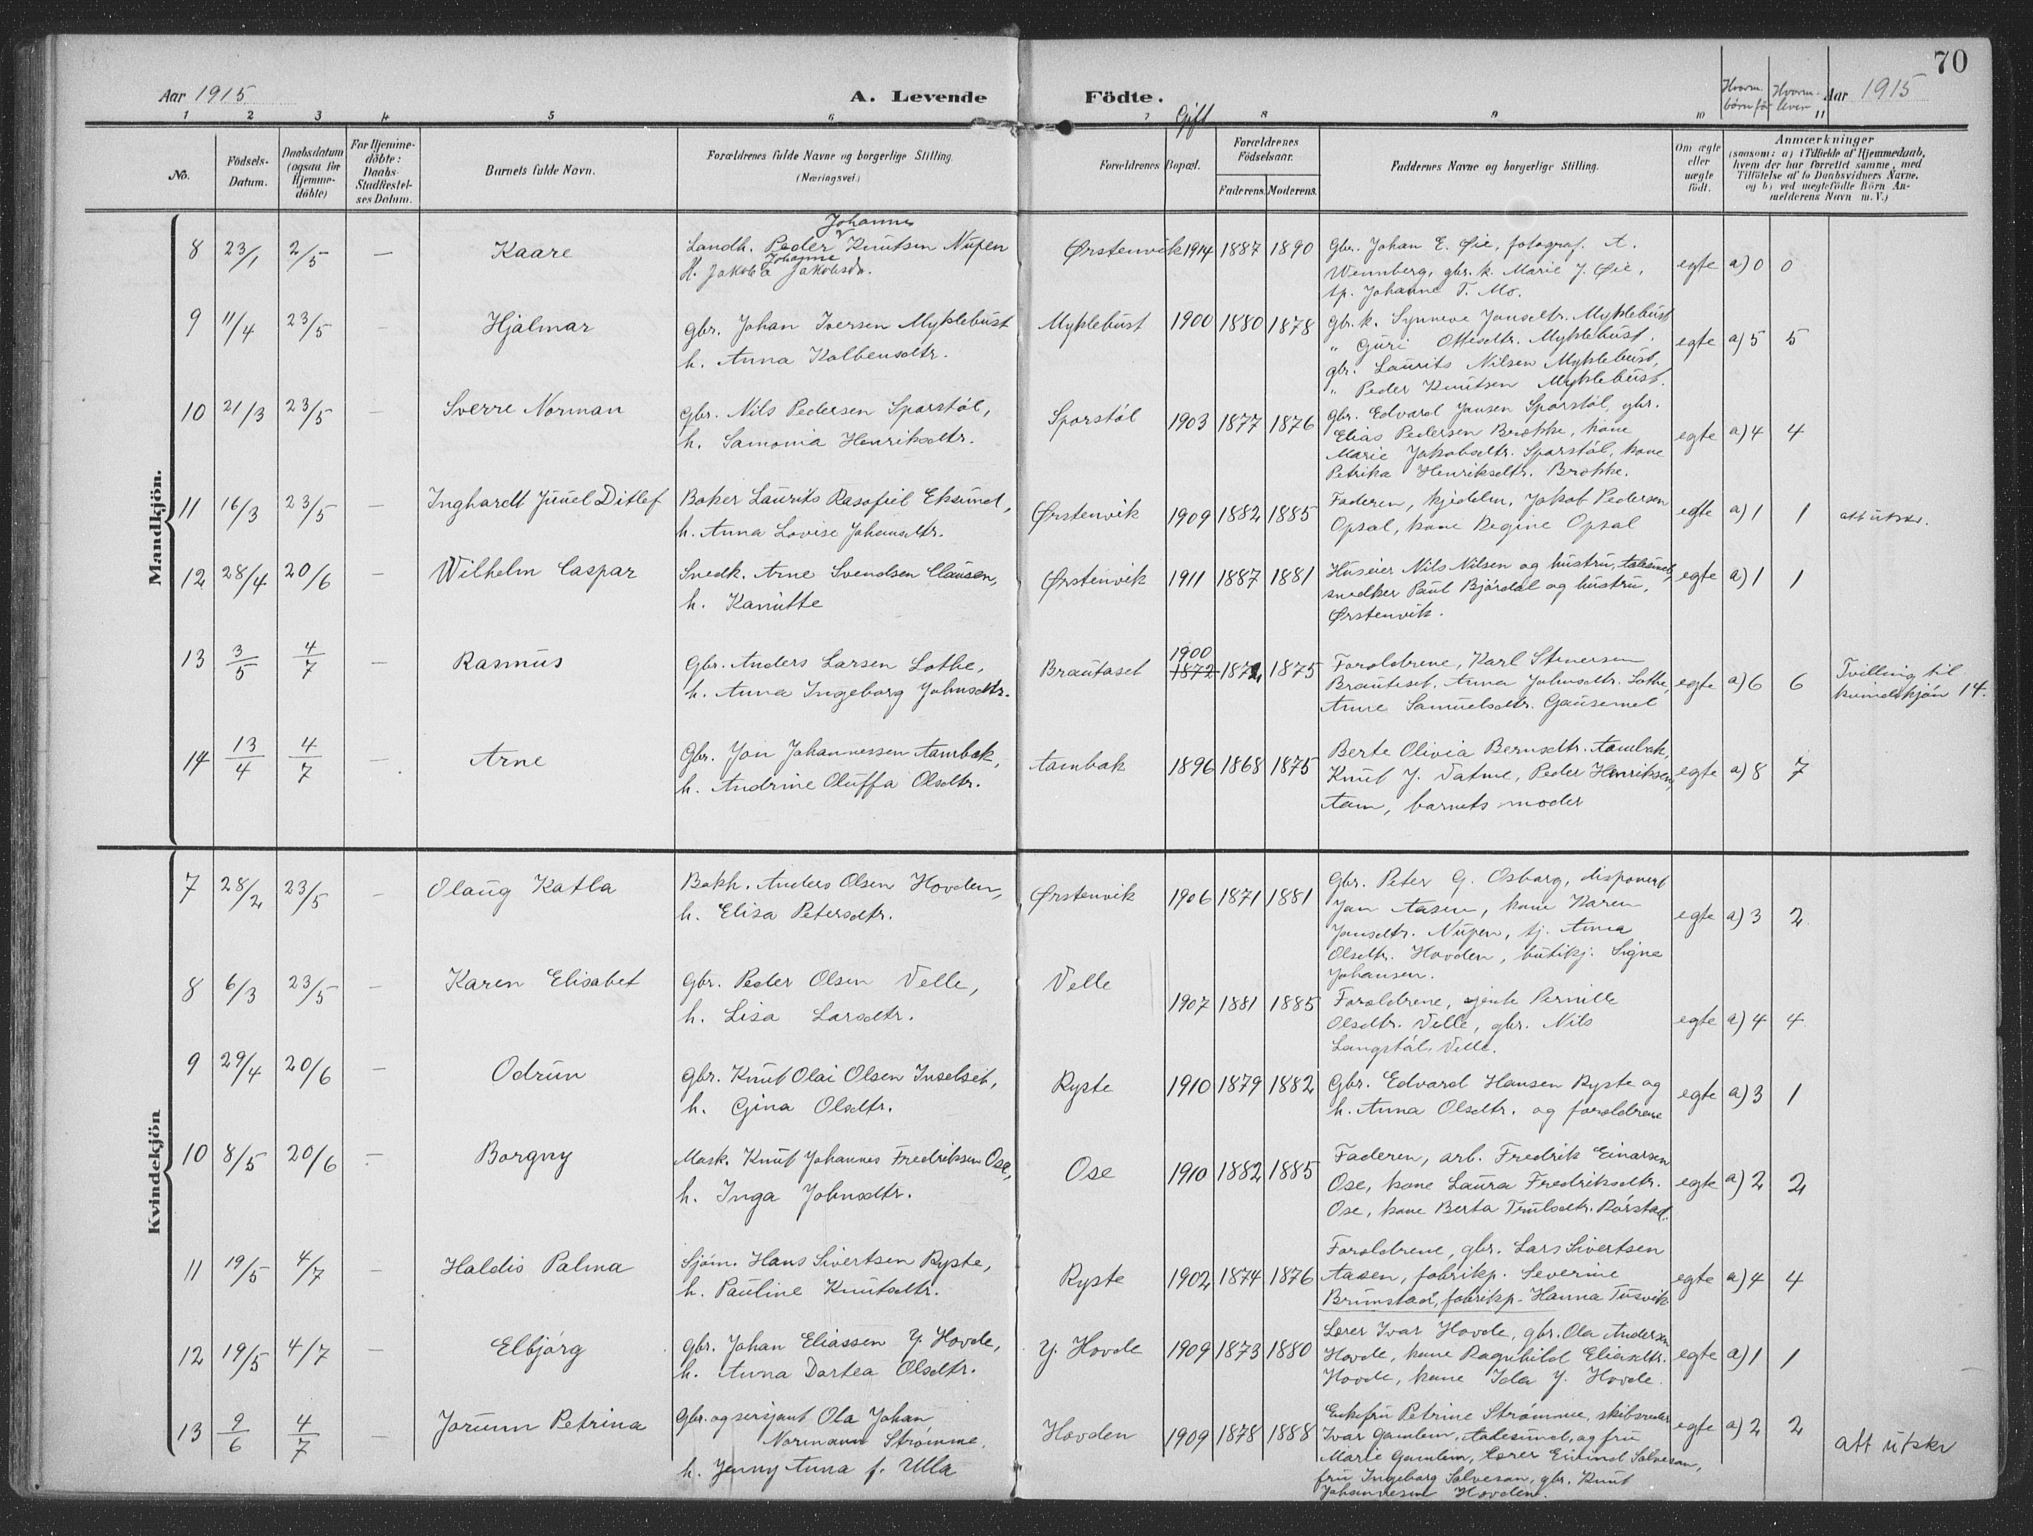 70
Aar 1915
A. Levende
Födte.
Gift
Hvorm. börn før
Hvorm. lever
Aar 1915
1 2 3 4 5 6 7 8 9 10 11
No.
Födsels-Datum.
Daabsdatum (ogsaa for Hjemmedöbte)
For Hjemmedöbte: Daabs-Stadfæstelses Datum.
Barnets fulde Navn.
Forældrenes fulde Navne og borgerlige Stilling. (Næringsvei.)
Forældrenes Bopæl.
Forældrenes Födselsaar.
Faderens. Moderens.
Faddernes Navne og borgerlige Stilling.
Om ægte eller uægte födt.
Anmærkninger
(saasom: a) i Tilfælde af Hjemmedaab, hvem der har forrettet samme, med Tilföielse af to Daabsvidners Navne, og b) ved uægtefödte Börn Anmelderens Navn m. V.)
Mandkjön.
8 23/1 2/5 — Kaare
Landh. Peder Johannes Knutsen Nupen
H. Jakoba Johanne Jakobsdtr.
Ørstenvik 1914 1887 1890
Gbr. Johan E. Øie, fotograf. A.
Wennberg, gbr. k. Marie J. Øie,
tp. Johanne T. Mo.
egte a) 0 0
9 11/4 23/5 - Hjalmar
Gbr. Johan Iversen Myklebust
h. Anna Kolbensdtr.
Myklebust 1900 1880 1878
Gbr. k. Synneve Jonsdtr. Myklebust
" Guri Ottesdtr. Myklebust.
gbr. Laurits Nilsen Myklebust,
" Peder Knutsen Myklebust.
egte a) 5 5
10 21/3 23/5 - Sverre Norman
Gbr. Nils Pedersen Sporstøl,
h. Samonia Henriksdtr.
Sporstøl 1903 1877 1876
Gbr. Edvard Jonsen Sporstøl, gbr.
Elias Pedersen Brække, kone
Marie Jakobsdtr. Sporstøl, kone
Petrika Henriksdtr. Brække.
egte a) 4 4
11 16/3 23/5 - Inghardt Juuel Ditlef
Baker Laurits Rasafiel Eksund,
h. Anna Lovise Johansdtr.
Ørstenvik 1909 1882 1885
Faderen, kjedelm. Jakob Pedersen
Opsal, kone Regine Opsal
egte a) 1 1 att utskr.
12 28/4 20/6 - Wilhelm Caspar
Snedk. Arne Svendsen Clausen,
h. Kanutte
Ørstenvik 1911 1887 1881
Huseier Nils Nilsen og hustru, Aalesund,
snedker Paul Bjørdal og hustru,
Ørstenvik.
egte a) 1 1
13 3/5 4/7 - Rasmus
Gbr. Anders Larsen Lothe,
h. Anna Ingeborg Johnsdtr.
Brautaset 1900 1872 1872 1875
Forældrene, Karl Stenersen
Brauteset, Anna Johnsdtr. Lothe,
Anne Samuelsdtr. Gausemel
egte a) 6 6
Tvilling til
kvindekjøn 14.
14 13/4 4/7 - Arne
Gbr. Jon Johannessen Aambak,
h. Andrine Oluffa Olsdtr.
Aambak 1896 1868 1875
Berte Olivia Berntsdtr. Aambak,
Knut J. Vatne, Peder Henriksen
Aam, barnets moder
egte a) 8 7
Kvindekjön
7 28/2 23/5 - Olaug Katla
Bokh. Anders Olsen Hovden,
h. Elisa Petersdtr.
Ørstenvik 1906 1871 1881
Gbr. Peter G. Osborg, disponent
Jon Aasen, kone Karen
Jonsdtr. Nupen, tj. Anna
Olsdtr. Hovden, butikj. Signe
Johansen.
egte a) 3 2
8 6/3 23/5 - Karen Elisabet
Gbr. Peder Olsen Velle,
h. Lisa Larsdtr.
Velle 1907 1881 1885
Forældrene, gjente Pernille
Olsdtr. Velle, gbr. Nils
Langstøl, Velle.
egte a) 4 4
9 29/4 20/6 - Odrun
Gbr. Knut Olai Olsen Inselset,
h. Gina Olsdtr.
Ryste 1910 1879 1882
Gbr. Edvard Hansen Ryste og
h. Anna Olsdtr. og forældrene
egte a) 3 1
10 8/5 20/6 - Borgny
Mask. Knut Johannes Fredriksen Ose,
h. Inga Johnsdtr.
Ose 1910 1882 1885
Faderen, arb. Fredrik Einarsen
Ose, kone Laura Fredriksdtr.
Ose, kone Berta Trulsdtr. Rørstad.
egte a) 2 2
11 19/5 4/7 - Haldis Palma
Sjøm. Hans Sivertsen Ryste,
h. Pauline Knutsdtr.
Ryste 1902 1874 1876
Forældrene, gbr. Lars Sivertsen
Aasen, fabrikp. Severine
Brunstad, fabrikp. Hanna Tusvik
egte a) 4 4
12 19/5 4/7 - Elbjørg
Gbr. Johan Eliassen Y. Hovde,
h. Anna Dortea Olsdtr.
Y. Hovde 1909 1873 1880
Lærer Ivar Hovde, gbr. Ola Andersen
Hovde, kone Ragnhild Eliasdtr.
Hovde, kone Ida Y. Hovde.
egte a) 1 1
13 9/6 4/7 - Jorunn Petrina
Gbr. og sersjant Ola Johan
Normann Strømme,
h. Jenny Anna f. Ulla
Hovden 1909 1878 1888
Enkefru Petrine Strømme, skibsreder
Ivar Gamlem, Aalesund, og fru
Marie Gamlem, lærer Eivind Salvesan,
fru Ingeborg Salvesan, gbr. Knut
Johannesen Hovden.
egte a) 2 2 att utskr